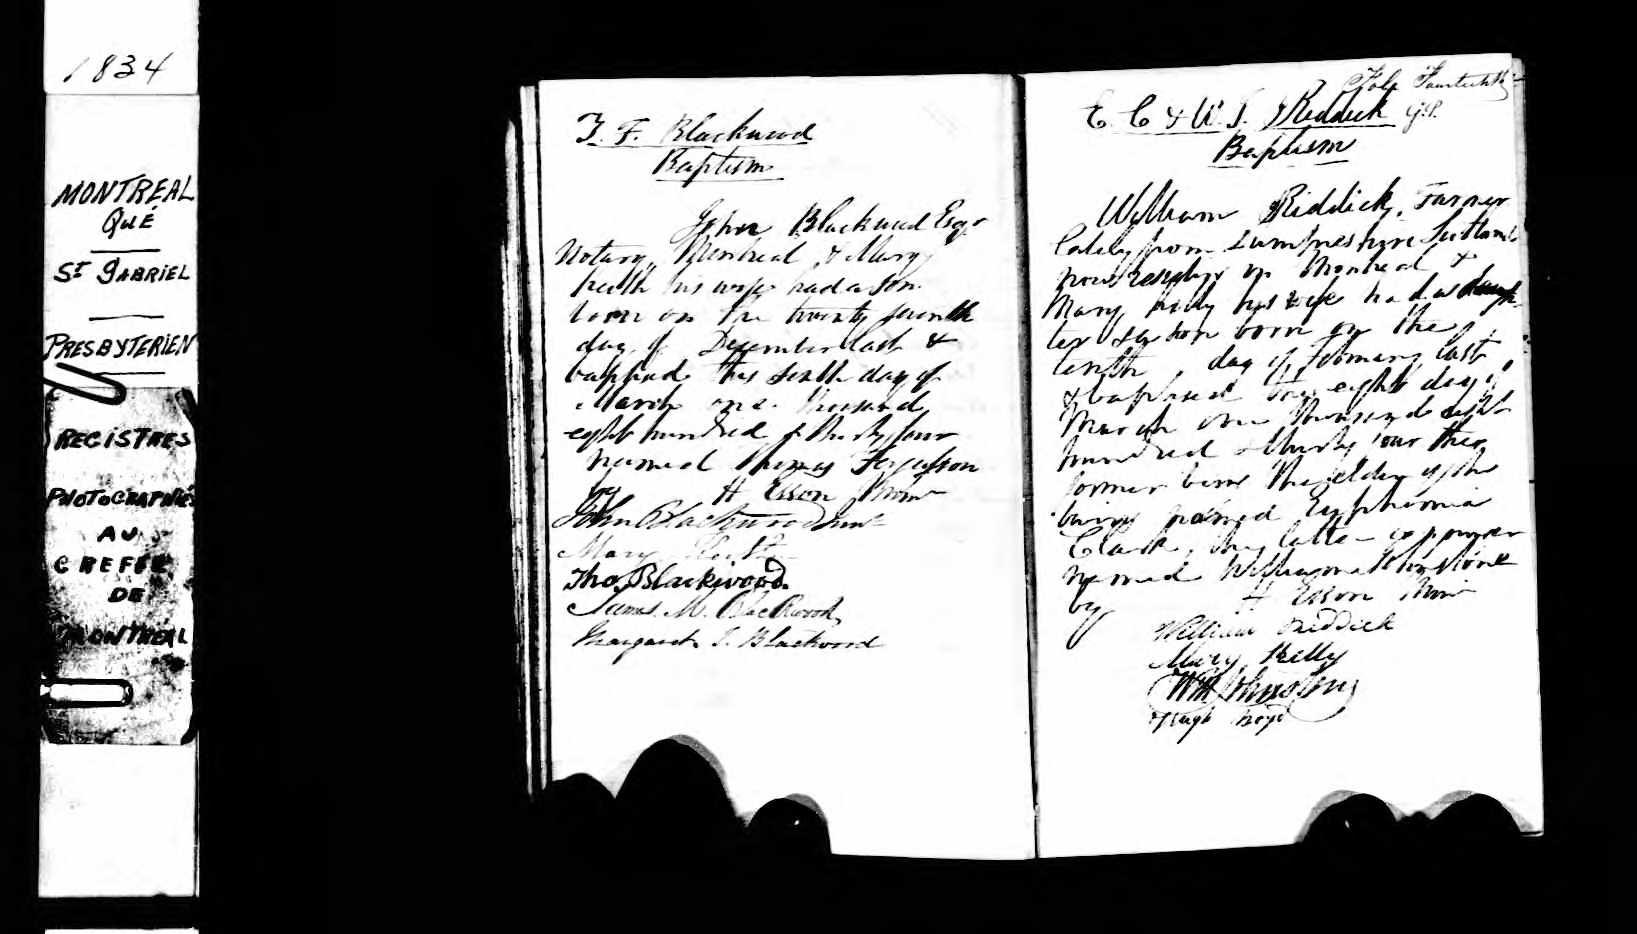 1834
MONTREAL
QUÉ
ST GABRIEL
PRESBYTERIEN
REGISTRES
PHOTOGRAPHIÉS
AU
GREFFE
DE
MONTREAL
T. F. Blackwood
Baptism
John Blackwood Esqr
Notary, Montreal & Mary
his wife had a son
born on the twenty seventh
day of December last &
baptized this sixth day of
March one thousand
eight hundred & thirty four
named Thomas Ferguson
by H Esson Minr
John Blackwood
Mary
Tho. Blackwood
James M. Blackwood
Margaret J. Blackwood
Folo Fourteenth
E. C & W. J. Riddick G.P.
Baptism
William Riddick, Farmer
lately from Dumfriesshire Scotland
now residing in Montreal &
Mary Kelly his wife had a daugh-
ter & a son born on the
tenth day of February last
& baptized the eight day of
March one thousand eight
hundred & thirty four the
former being the elder of the
twins named Euphemia
Clark, the latter & younger
named William Johnstone
by H Esson Minr
William Riddick
Mary Kelly
Wm Johnstone
Hugh Boyd